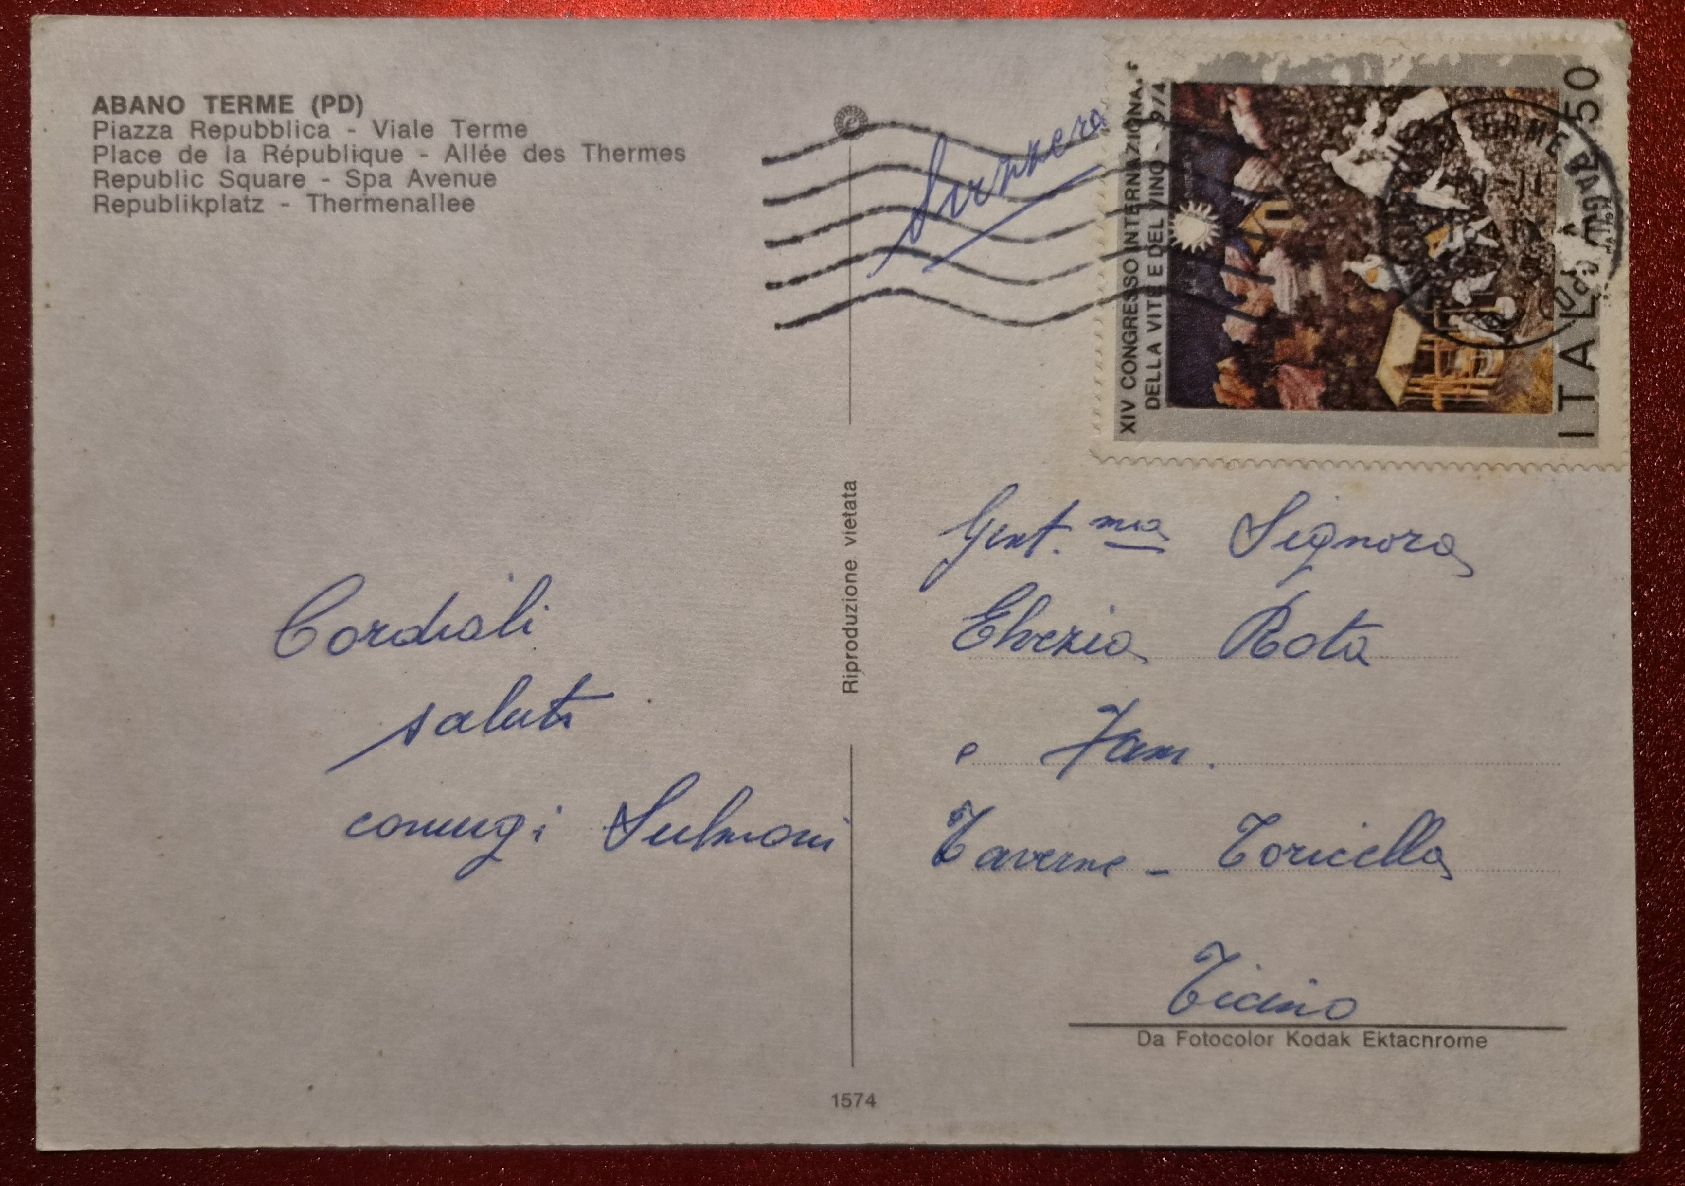 ABANO TERME (PD)
Piazza Repubblica - Viale Terme
Place de la République - Allée des Thermes
Republic Square - Spa Avenue
Republikplatz - Thermenallee
Svizzera
XIV CONGRESSO INTERNAZIONALE
DELLA VITE E DEL VINO - 974
ITALIA 50
TERME
Gent.ma Signora
Elvezia Rota
e Fam.
Taverne - Toricella
Ticino
Cordiali
saluti
coniugi Sulmoni
Riproduzione vietata
Da Fotocolor Kodak Ektachrome
1574